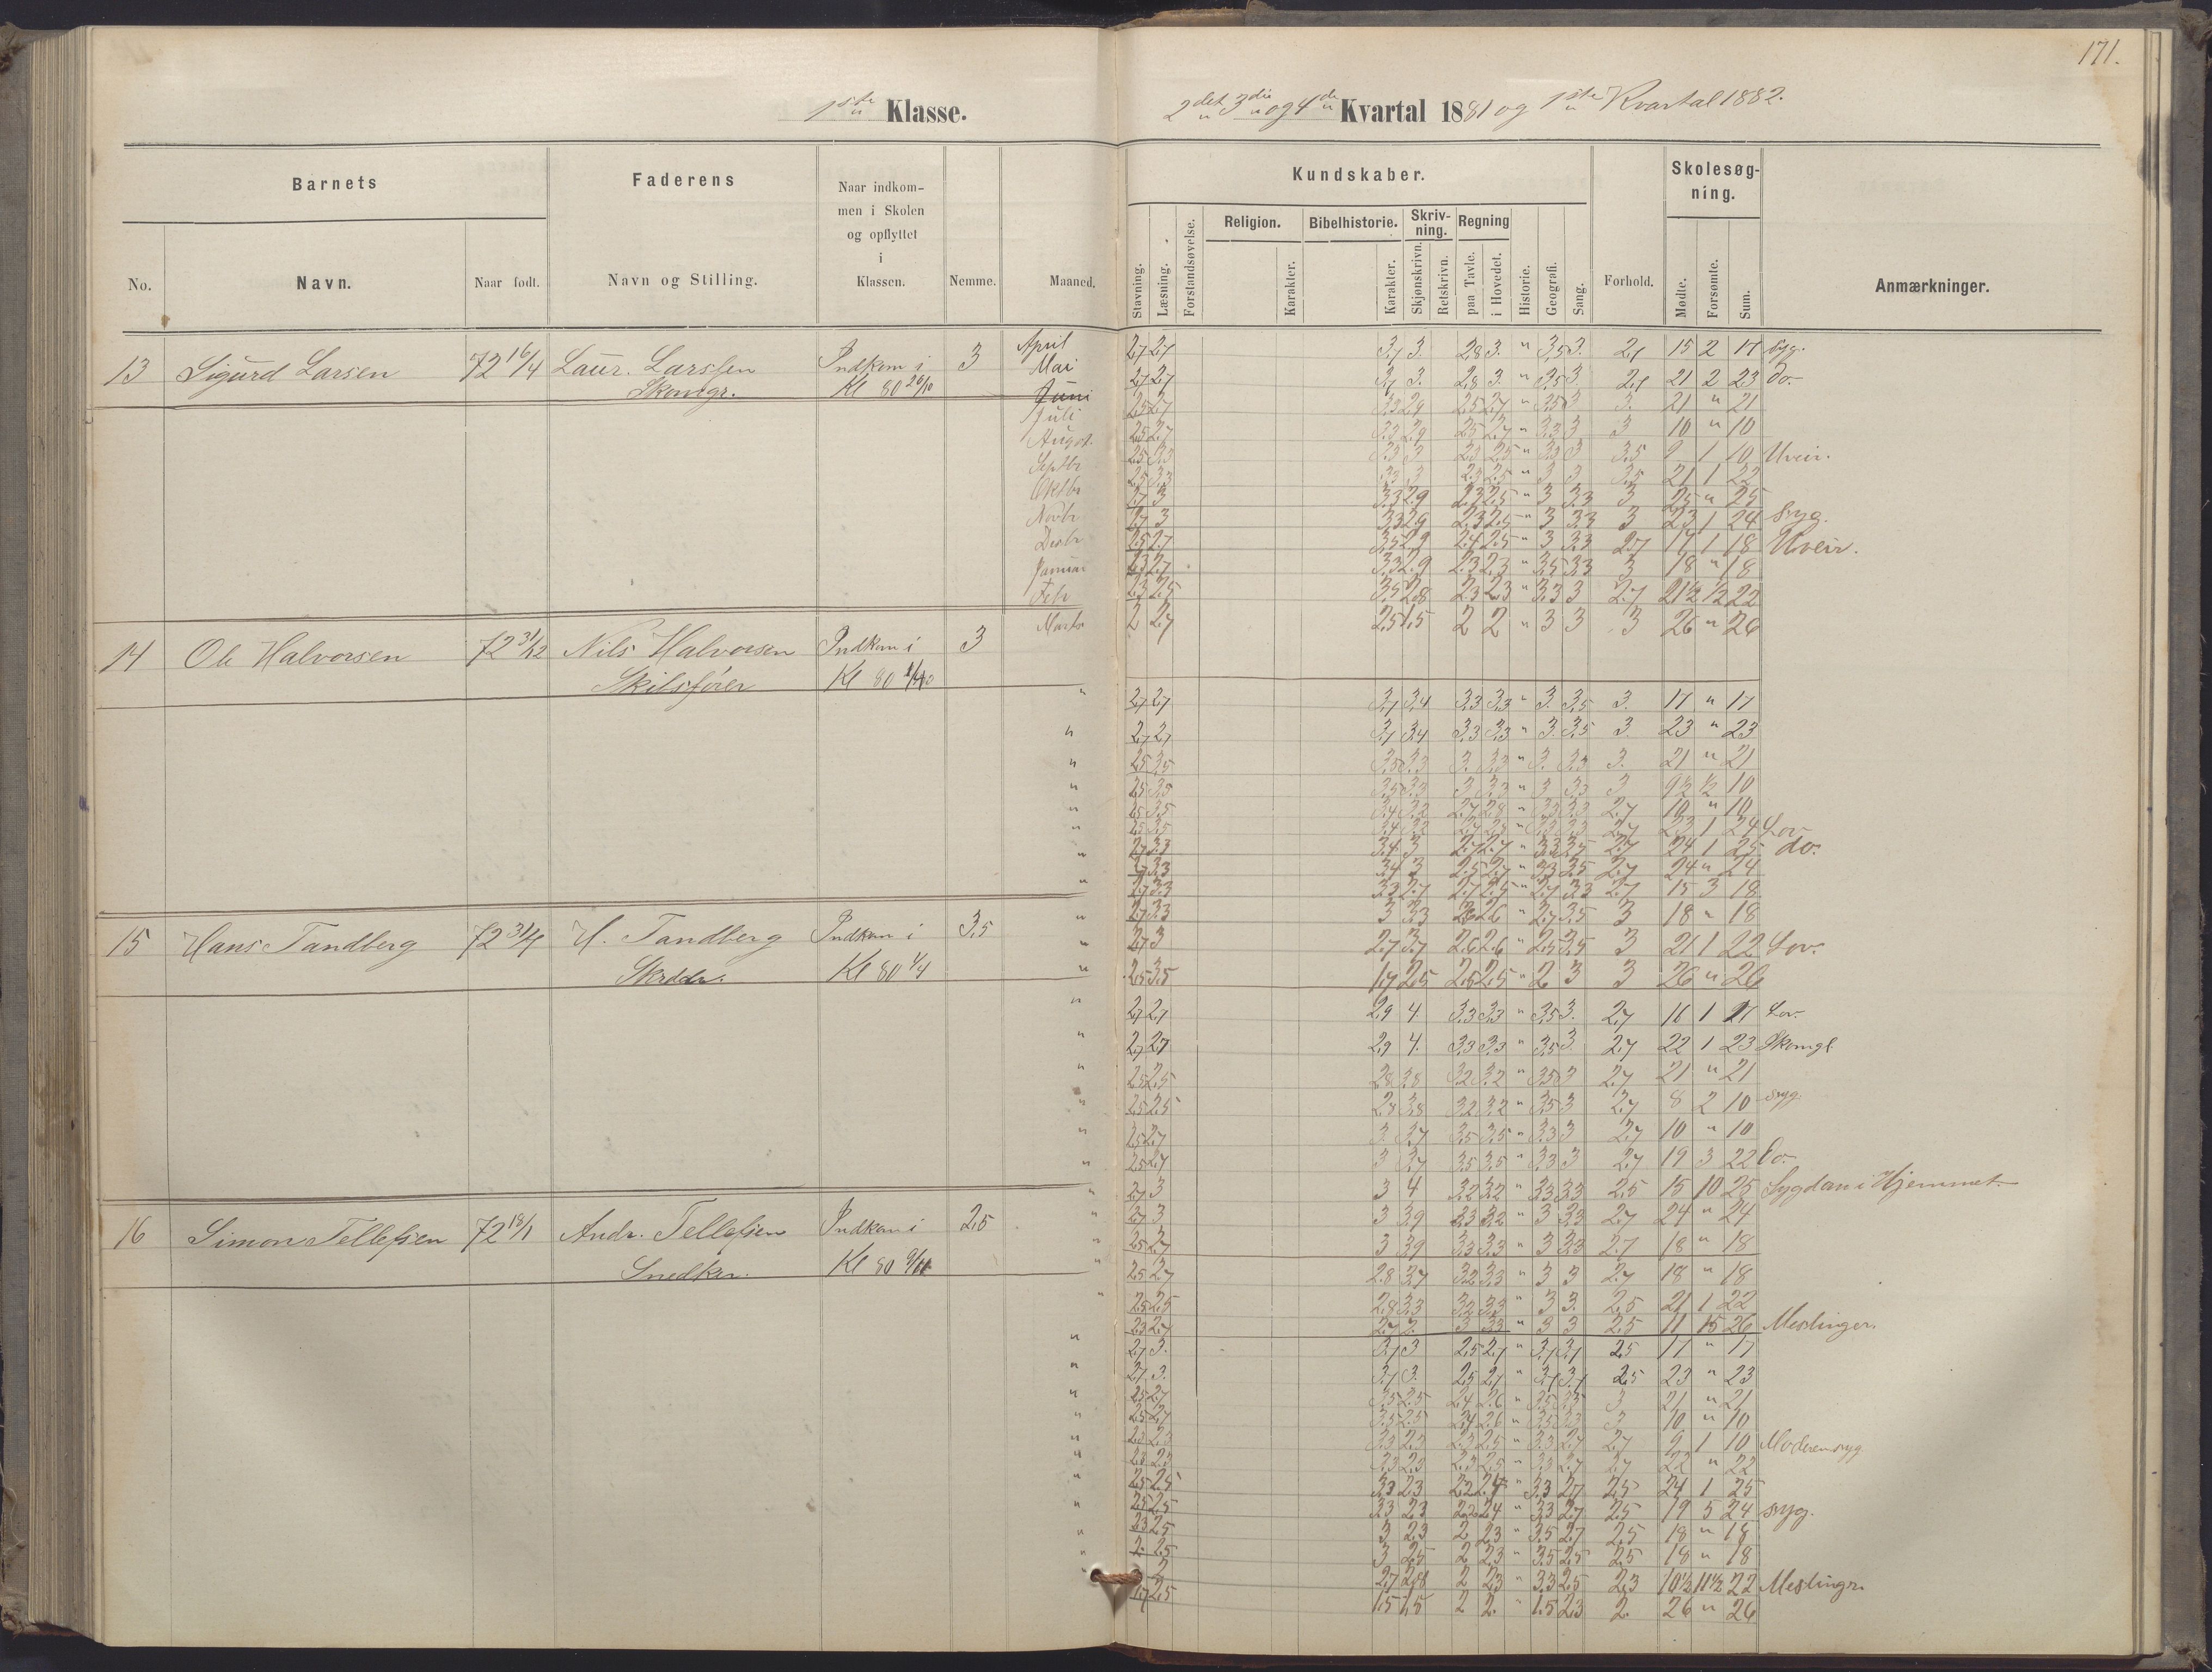 171.
1ste Klasse.
2det 3die og 4de Kvartal 1881 og 1ste Kvartal 1882.
Barnets
Faderens
Naar indkom-
men i Skolen
og opflyttet
i
Klassen.
Kundskaber.
Skolesøg-
ning.
Religion.
Bibelhistorie.
Skriv-
ning.
Regning
No.
Navn.
Naar født.
Navn og Stilling.
Nemme.
Maaned.
Stavning.
Læsning.
Forstandsøvelse.
Karakter.
Karakter.
Skjønskrivn.
Retskrivn.
paa Tavle.
i Hovedet.
Historie.
Geografi.
Sang.
Forhold.
Mødte.
Forsømte.
Sum.
Anmærkninger.
13 Sigurd Larsen 72 16/4 Laur. Larssen Indkom i 3
Skomgr. Kl 80 20/10
April 2,7 2,7 3,7 3. 2,8 3. " 3,5 3. 2,7 15 2 17 Syg.
Mai 2,7 2,7 3,7 3. 2,8 3. " 3,5 3. 2,7 21 2 23 do.
Juni 2,5 2,7 3,3 2,9 2,5 2,7 " 3,5 3 3. 21 " 21
Juli 2,5 2,7 3,3 2,9 2,5 2,7 " 3,3 3 3 10 " 10
August 2,5 3,3 3,3 3 2,3 2,5 " 3,3 3 3,5 9 1 10 Uveir.
Septbr 2,5 3,3 3,3 3 2,3 2,5 " 3 3 3,5 21 1 22
Oktbr 2,7 3 3,3 2,9 2,3 2,5 " 3 3,3 3 25 " 25
Novbr 2,7 3 3,3 2,9 2,3 2,5 " 3 3,3 3 23 1 24 Syg.
Desbr 2,5 2,7 3,5 2,9 2,4 2,5 " 3 3,3 2,7 17 1 18 Uveir.
Januar 2,3 2,7 3,3 2,9 2,3 2,3 " 3,5 3,3 3 18 " 18
Feb 2,3 2,5 3,5 2,8 2,3 2,3 " 3,3 3 2,7 21½ ½ 22
Marts 2 2,7 2,5 1,5 2 2 " 3 3 3 26 " 26
14 Ole Halvorsen 72 31/12 Nils Halvorsen Indkom i 3
Kl 80
" 2,7 2,7 3,7 3,4 3,3 3,3 " 3. 3,5 3. 17 " 17
" 2,7 2,7 3,7 3,4 3,3 3,3 " 3. 3,5 3. 23 " 23
" 2,5 3,5 3,5 3,3 3. 3,3 " 3. 3,3 3. 21 " 21
" 2,5 3,5 3,5 3,3 3 3,3 " 3 3,3 3 9½ ½ 10
" 2,5 3,5 3,4 3,2 2,7 2,8 " 3,3 3,3 2,7 10 " 10
" 2,5 3,5 3,4 3,2 2,7 2,8 " 3,3 3,3 2,7 23 1 24 Lov.
" 2,7 3,3 3,4 3 2,7 2,7 " 3,3 3,5 2,7 24 1 25 do.
" 2,7 3,3 3,4 3 2,5 2,7 " 3,3 3,5 2,7 24 " 24
2,7 3,3 3,3 2,7 2,7 2,5 " 2,7 3,3 2,7 15 3 18
" 2,7 3,3 3 3,3 2,6 2,6 " 2,7 3,5 3 18 " 18
15 Hans Tandberg 72 H. Tandberg Indkom i 3,5
Kl 80 1/4
" 2,7 3 2,7 3,7 2,6 2,6 " 2,5 3,5 3 21 1 22 Lov.
" 2,5 3,5 1,7 2,5 2,5 2,5 " 2 3 3 26 " 26
" 2,7 2,7 2,9 4. 3,3 3,3 " 3,5 3. 2,7 16 1 17 Lov.
" 2,7 2,7 2,9 4. 3,3 3,3 " 3,5 3. 2,7 22 1 23 Skomgl
" 2,5 2,5 2,8 3,8 3,2 3,2 " 3,5 3 2,7 21 " 21
" 2,5 2,5 2,8 3,8 3,2 3,2 " 3,5 3 2,7 8 2 10 syg.
" 2,5 2,7 3. 3,7 3,5 3,5 " 3,3 3 2,7 10 " 10
" 2,5 2,7 3 3,7 3,5 3,5 " 3,3 3 2,7 19 3 22 do.
" 2,7 3 3 4 3,2 3,2 " 3,3 3,3 2,5 15 10 25 Sygdom i Hjemmet.
" 2,7 3 3 3,9 3,3 3,2 " 3 3,3 2,7 24 " 24
16 Simon Tellefsen 72 18/1 Andr. Tellefsen Indkom i 2,5
Snedker. Kl 80
" 2,5 2,7 3 3,9 3,3 3,3 " 3 3,3 2,7 18 " 18
" 2,5 2,7 2,8 3,7 3,2 3,3 " 3 3 2,7 18 " 18
" 2,5 2,5 2,8 3,3 3,2 3,3 " 3 3. 2,5 21 1 22
2,3 2,7 2,7 2. 3 3,3 " 3 3 2,5 11 15 26 Meslinger.
" 2,7 3. 3,7 3 2,5 2,7 " 3,7 3,7 2,5 17 " 17
" 2,7 3. 3,7 3. 2,5 2,7 " 3,7 3,7 2,5 23 " 23
" 2,5 2,7 3,5 2,5 2,4 2,6 " 3,5 3,3 3 21 " 21
" 2,5 2,7 3,5 2,5 2,4 2,6 " 3,5 3,3 3 10 " 10
" 2,3 2,3 3,3 2,3 2,3 2,5 " 3,3 2,7 2,7 9 1 10 Moderen syg
" 2,3 2,3 3,3 2,3 2,3 2,5 " 3,3 2,7 2,7 22 " 22
" 2,5 2,5 3,3 2,3 2,2 2,4 " 3,3 2,7 2,5 24 1 25
" 2,5 2,5 3,3 2,3 2,2 2,4 " 3,3 2,7 2,5 19 5 24 syg.
" 2,3 2,5 3 2,3 2 2,3 " 3,5 2,7 2,5 18 " 18
" 2 2,5 3 2,5 2 2,3 " 3,5 2,5 2,5 18 " 18
" 2 2,7 2,8 2 2,3 " 3,3 2,5 2,3 10½ 11½ 22 Meslingr.
1,7 2,5 1,5 1,5 2 2. " 1,5 2,3 2. 26 " 26